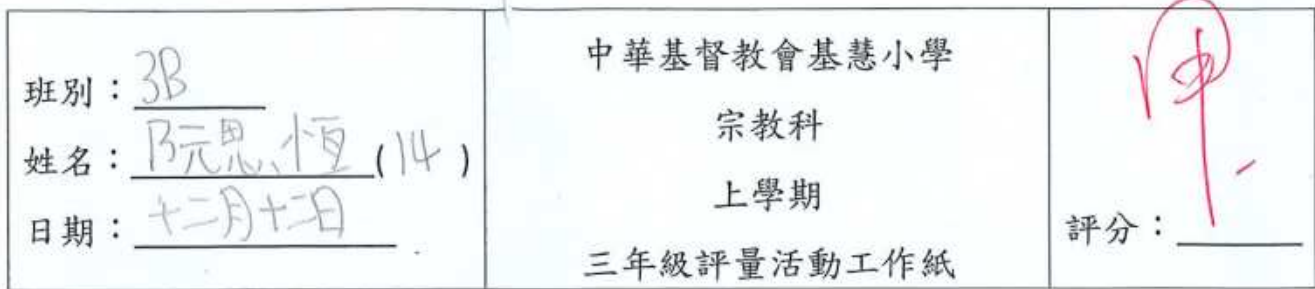 班別：3B
姓名：阮思恆(14)
日期：十二月十二日
中華基督教會基慧小學
宗教科
上學期
三年級評量活動工作紙
評分：